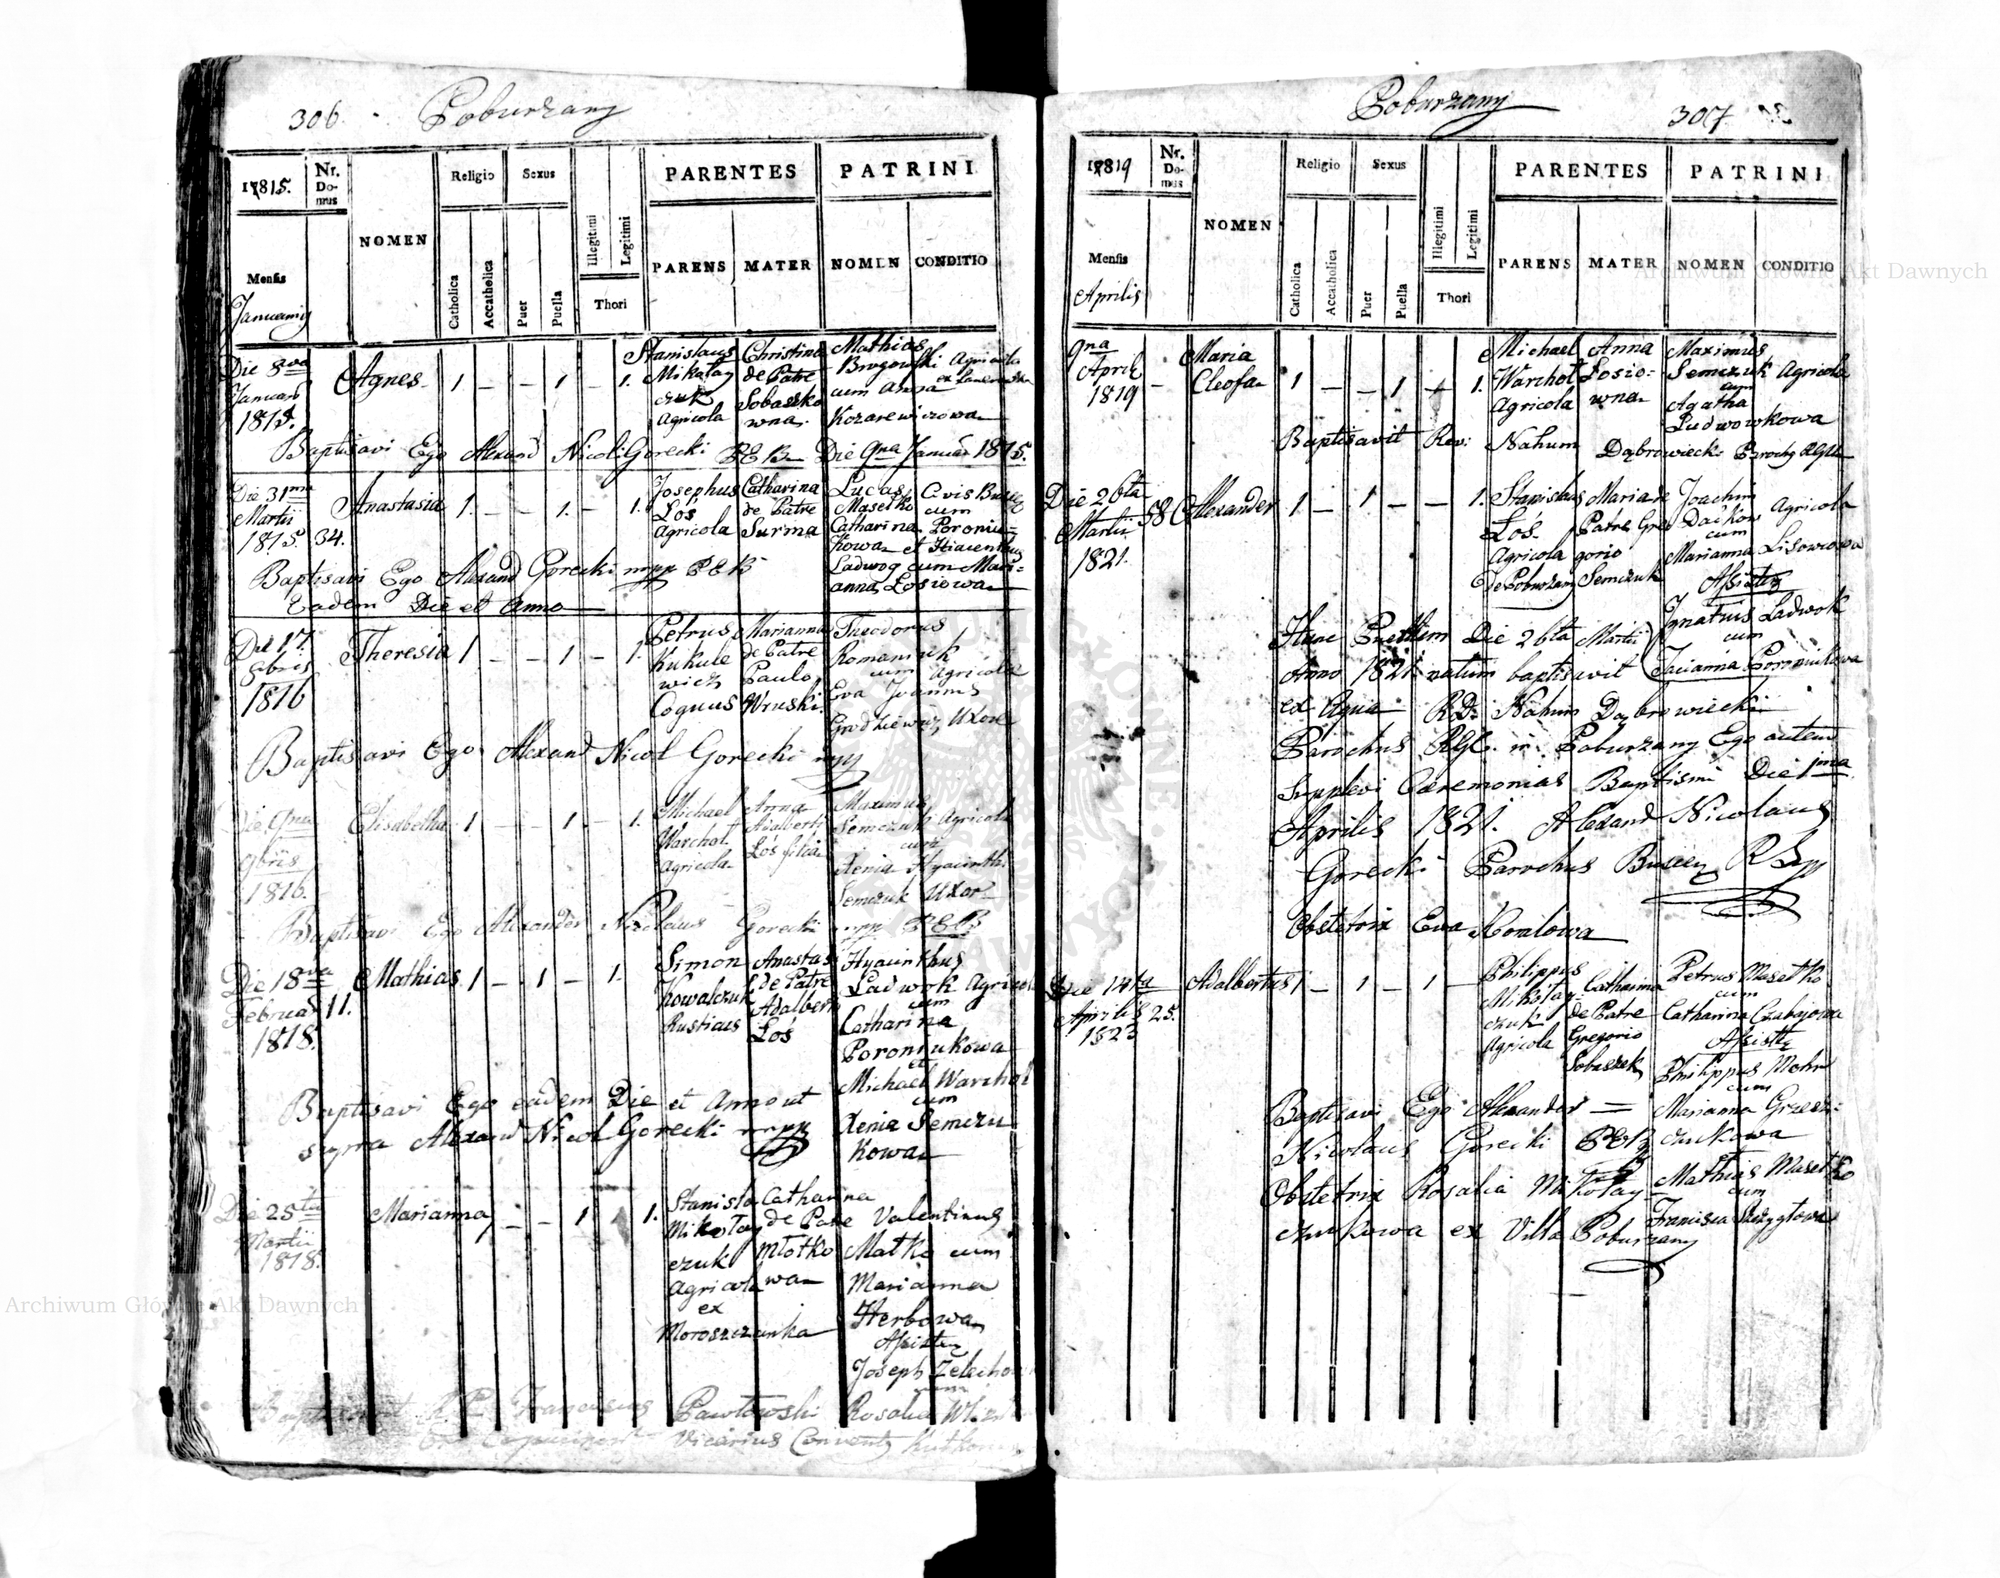 306. Poburzany
1815.
Nr. Do- mus
NOMEN
Religio
Sexus
PARENTES
PATRINI
Mensis
Januarij
Catholica
Accatholica
Puer
Puella
Illegitimi
Legitimi
Thori
PARENS
MATER
NOMEN
CONDITIO
Die 8va
Januar
1815.
Agnes 1 – – 1 – 1.
Stanislaus
Mikołay
czuk
Agricola
Christina
de Patre
Sobaszko
wna.
Mathias
Agricola
cum Anna
Kozarewiczowa
Baptisavi Ego Alexand Nicol Gorecki PEB Die 9na Januar 1815.
Die 31ma
Martii
1815. 34.
Anastasia 1. – – 1. – 1.
Josephus
Łoś
Agricola
Catharina
de Patre
Surma
Lucas
Masełko cum
Catharina Poroniu-
kowa et Hiacenthus
Ladwog cum Mari-
anna Łosiowa
Baptisavi Ego Alexand Gorecki mpp PEB
Eadem Die et Anno
Die 17.
1816
Theresia 1 – – 1 – 1.
Petrus
Kukule
wicz
Marianna
de Patre
Paulo
Wruski.
Theodorus
Romaniuk
cum Agricola
Eva Joannis
Uxore
Baptisavi Ego Alexand Nicol Gorecki mpp
Die 9na
9bris
1816.
Elisabetha 1 – – 1 – 1.
Michael
Warchoł
Agricola
Anna
Adalberti
Łoś filia
Maximus
Semczuk Agricola
cum
Xenia Hyacinthi
Semczuk Uxor
Baptisavi Ego Alexander Nicolaus Gorecki mpp PEB
Die 18va
Februar 11.
1818.
Mathias 1 – 1 – 1.
Simon
Kowalczuk
Rusticus
Anastasi
de Patre
Adalberto
Łoś
Hyacinthus
Ladwok Agricol
cum
Catharina
Poroniukowa
et
Michael Warchoł
cum
Xenia Semczu
kowa
Baptisavi Ego eadem Die et Anno ut
supra Alexand Nicol Gorecki mpp
Die 25ta
Martii
1818.
Marianna 1 – – 1 1 1.
Stanisla
Mikołay
czuk
Agricola
ex
Moroszczanka
Catharina
de Patre
Młotko
wa
Valentinus
Matko cum
Marianna
Herbowa
Assisten
Joseph Żelecho
cum
Rosalia
Baptisavit R. P. Franciscus Pawłowski
Vicarius Convent
Poburzany 307
1819
Nr. Do- mus
NOMEN
Religio
Sexus
PARENTES
PATRINI
Mensis
Aprilis
Catholica
Accatholica
Puer
Puella
Illegitimi
Legitimi
Thori
PARENS
MATER
NOMEN
CONDITIO
9na
April
1819
Maria
Cleofa 1 – – 1 + 1.
Michael
Warchoł
Agricola
Anna
Łosio-
wna
Maximus
Semczuk Agricola
cum
Agatha
Ludwowkowa
Baptisavit Rev: Nahum Dąbrowiecki Parochus RGL
Die 26ta
Martii
1821.
58 Alexander 1 – 1 – – 1.
Stanislaus
Łoś
Agricola
de Poburzany
Maria de
Patre Gre
gorio
Semczuk
Joachim
Daćkow Agricola
cum
Marianna Lisowiowa
Assisten
Ignatius Ladwok
cum
Poroniukowa
Hunc Puellum Die 26ta Martii
Anno 1821 natum baptisavit
ex Aqua RD: Nahum Dąbrowiecki
Parochus RGL. in Poburzany Ego autem
Supplevi Caeremonias Baptismi Die 1ma
Aprilis 1821. Alexand Nicolaus
Gorecki Parochus
Obstetrix Eva Kowalowa
Die 14ta
Aprilis 25.
1823
Adalbertus 1 – 1 – 1 –
Philippus
Mikołay-
czuk
Agricola
Catharina
de Patre
Gregorio
Sobaszek
Petrus Masełko
cum
Catharina Czabajowa
Assist
Philippus Mohr
cum
Marianna Grzesz-
czukowa
Mathias Masełko
cum
Francisca
Baptisavi Ego Alexander =
Nicolaus Gorecki PEB
Obstetrix Rosalia Mikołay
czukowa ex Villa Poburzany
Archiwum Główne Akt Dawnych
Archiwum Główne Akt Dawnych